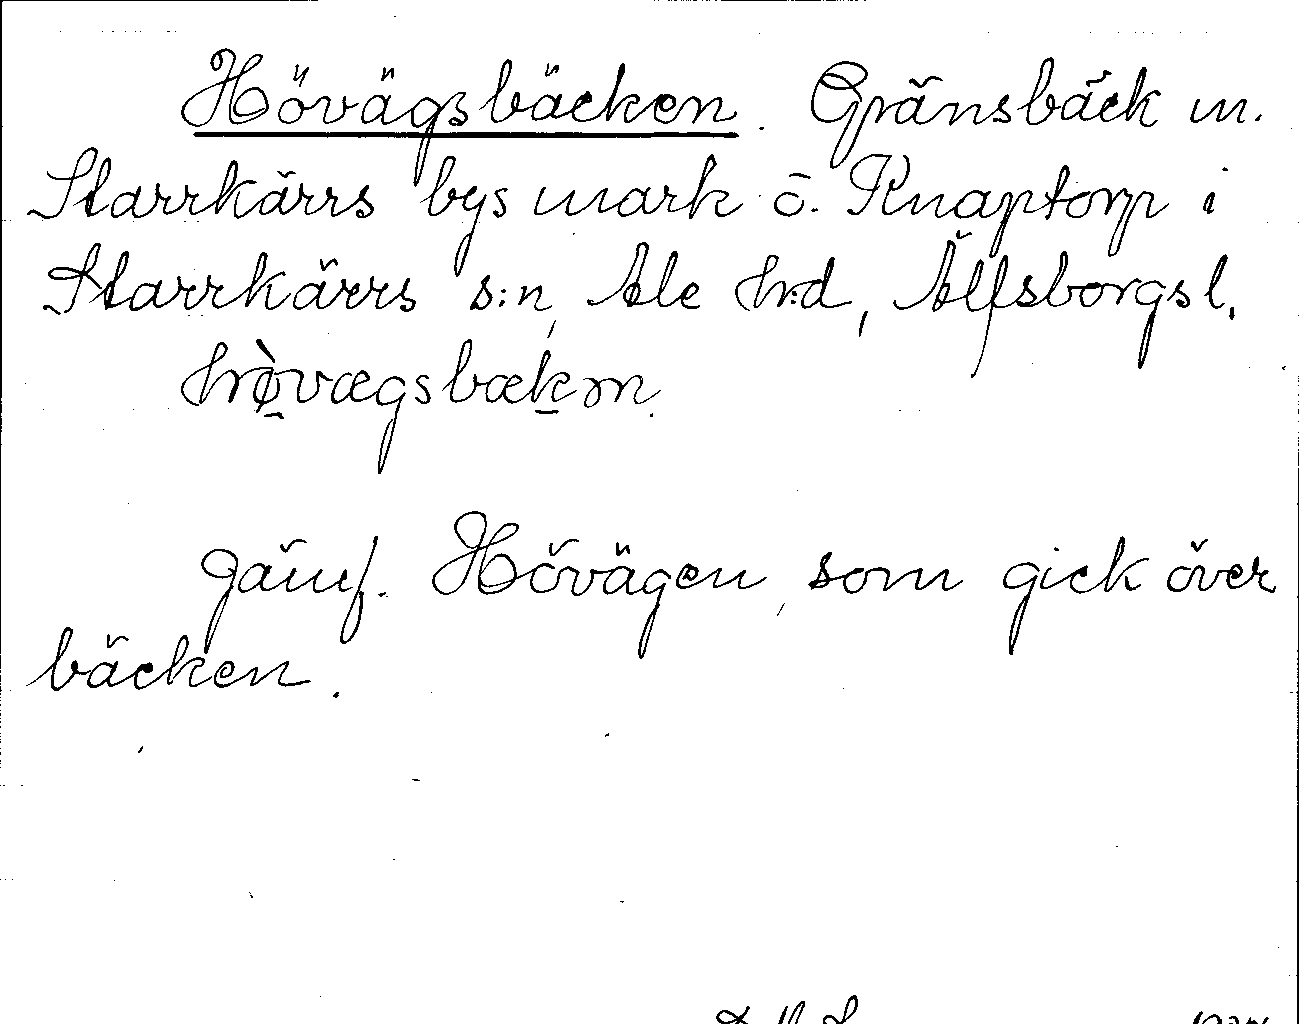 Hövägsbäcken. Gränsbäck m.
Starrkärrs bys mark o. Knaptorp i
Starrkärrs s:n, Ale hrd, Älfsborgs l.
hø̀vægsbækən.
Jämf. Hövägen, som gick över
bäcken.